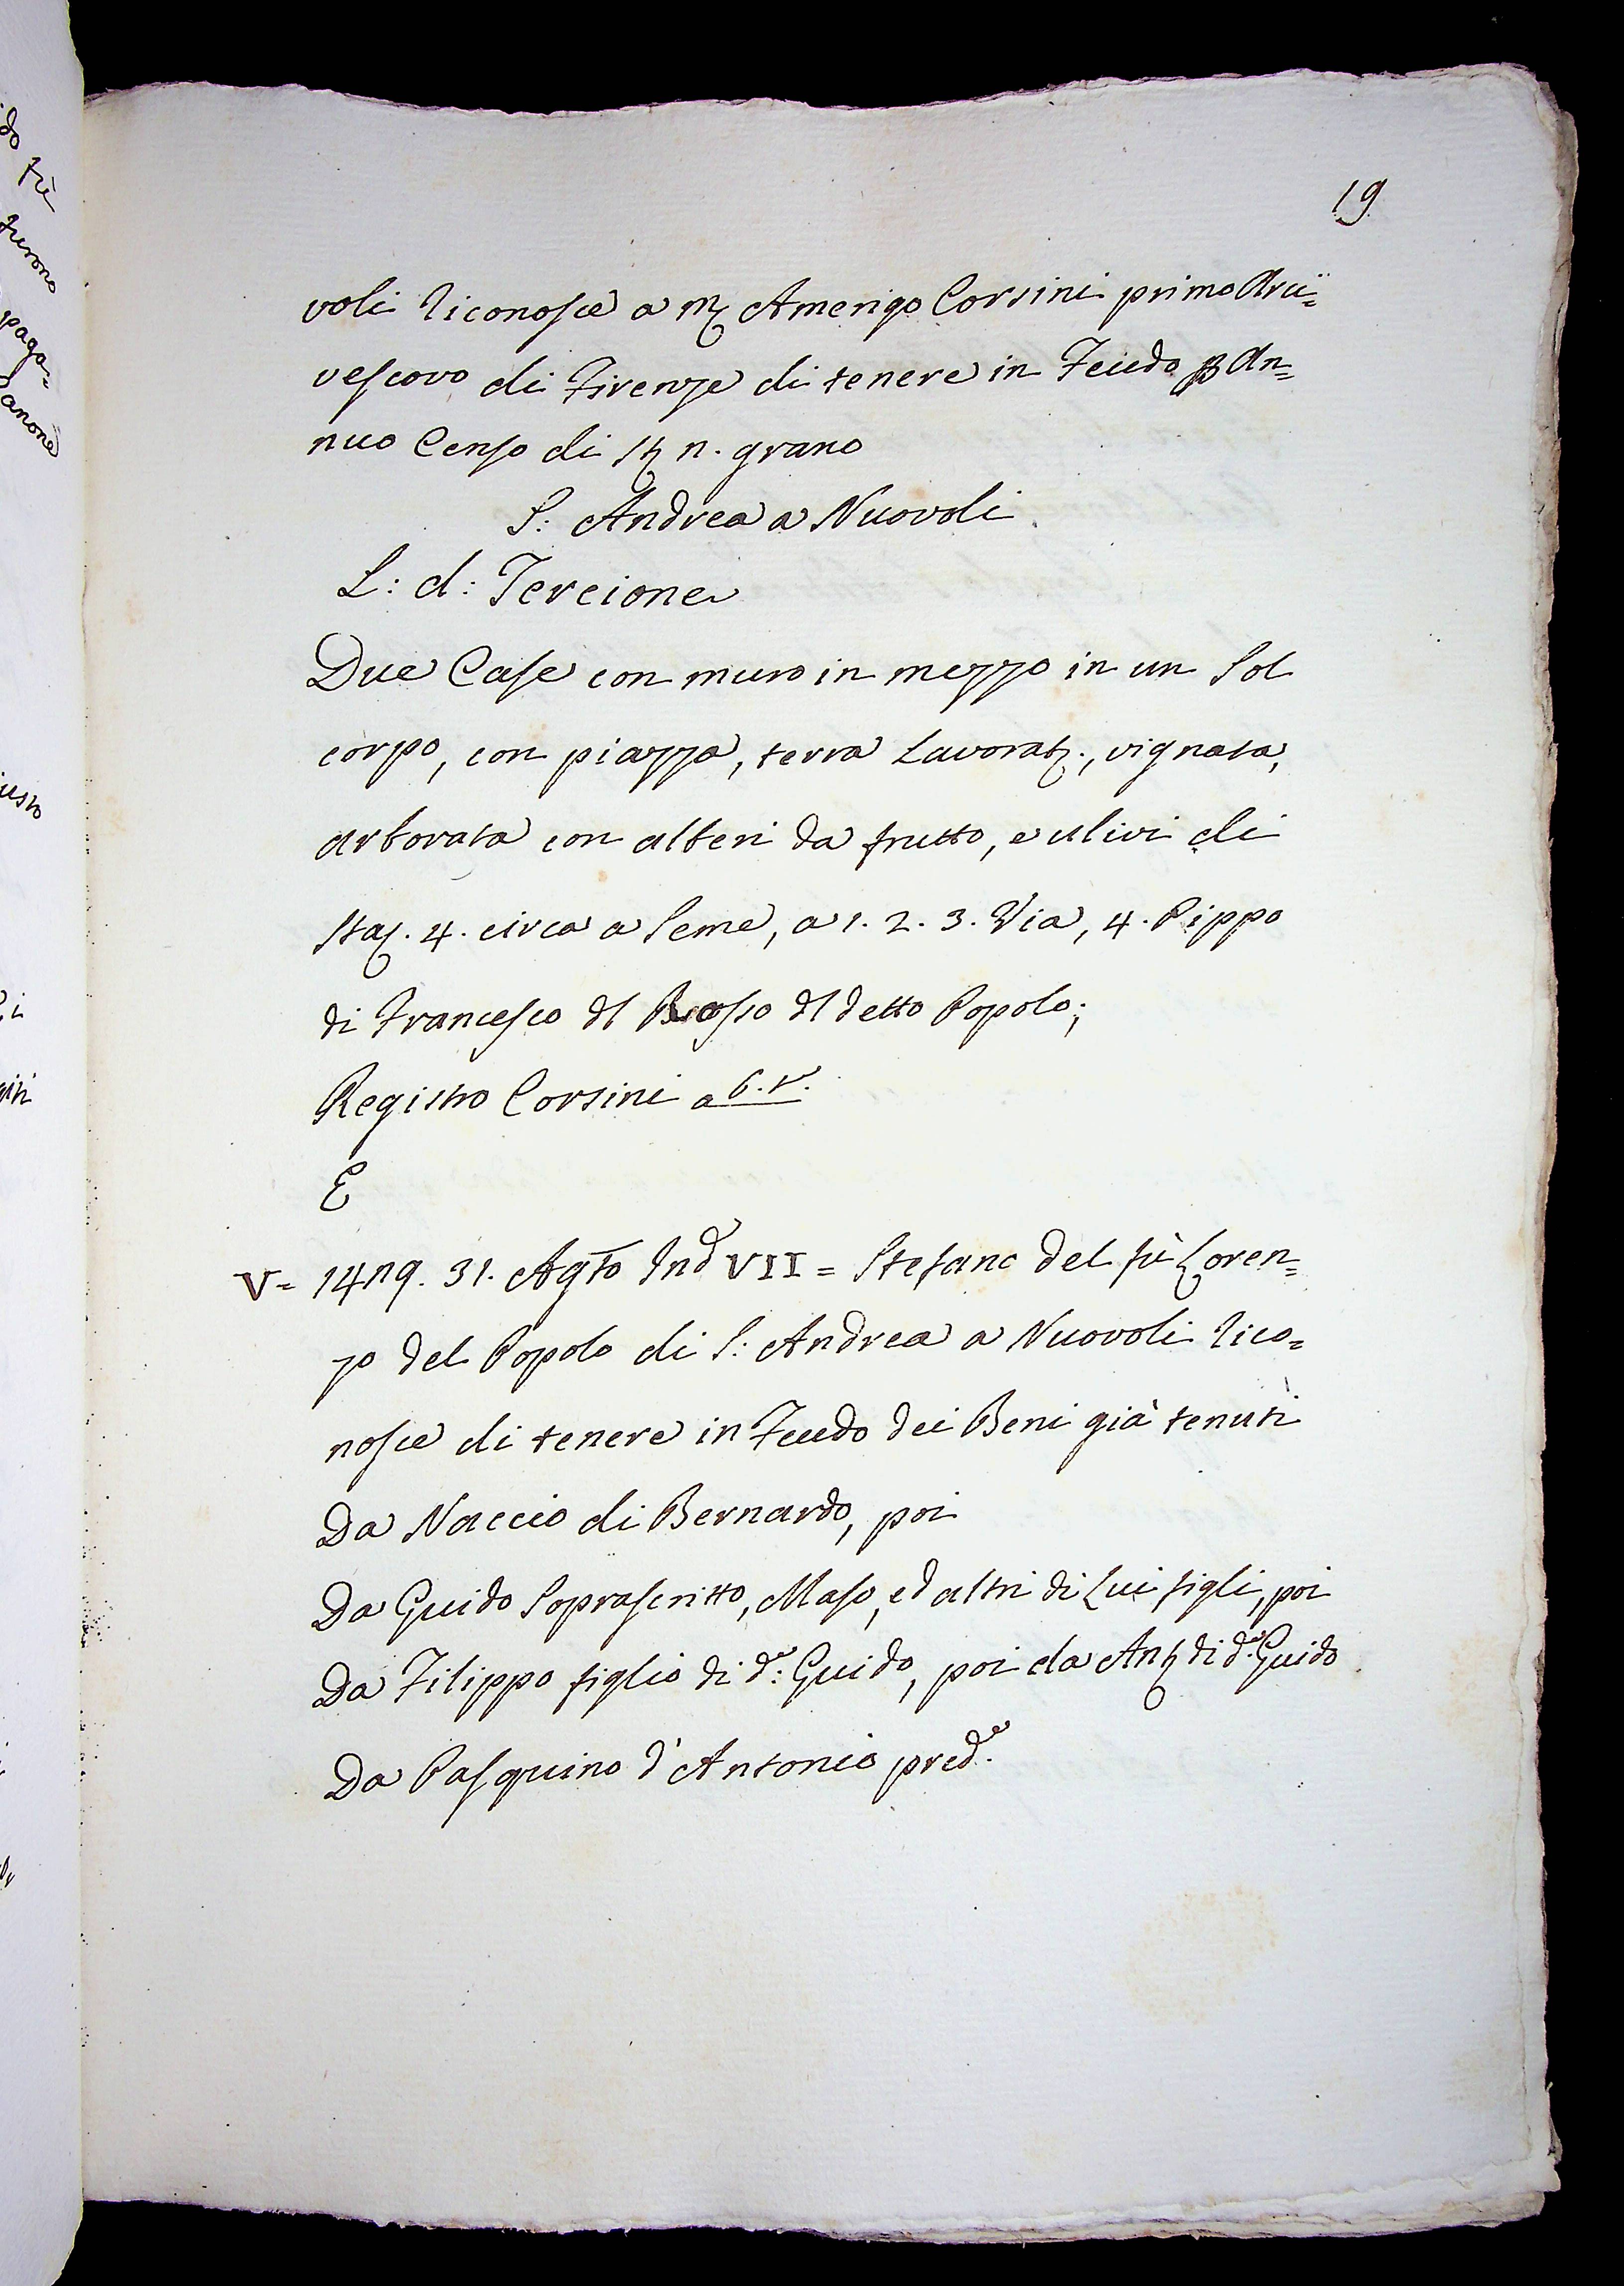 19
voli riconosce a M. Amerigo Corsini primo Arci=
vescovo di Firenze di tenere in Feudo p An=
nuo Censo di St. n. grano
S: Andrea a Nuovoli
L: d: Tercione
Due Case con muro in mezzo in un Sol
corpo, con piazza, terra Lavorat., vignata,
arborata con alberi da frutto, e ulivi di
Sta. 4. circa a Seme, a 1. 2. 3. Via, 4. Pippo
di Francesco dl Rosso dl detto Popolo;
Registro Corsini a 6. v.
E
V= 1429. 31. Agto Ind VII = Stefano del fù Loren=
zo del Popolo di S: Andrea a Nuovoli rico=
nosce di tenere in Feudo dei Beni già tenuti
Da Naccio di Bernardo, poi
Da Guido Soprascritto, Maso, ed altri di Lui figli, poi
Da Filippo figlio di do: Guido, poi da Ant. di do. Guido
Da Pasquino d'Antonio predo.
do trè
furono
paga=
anone